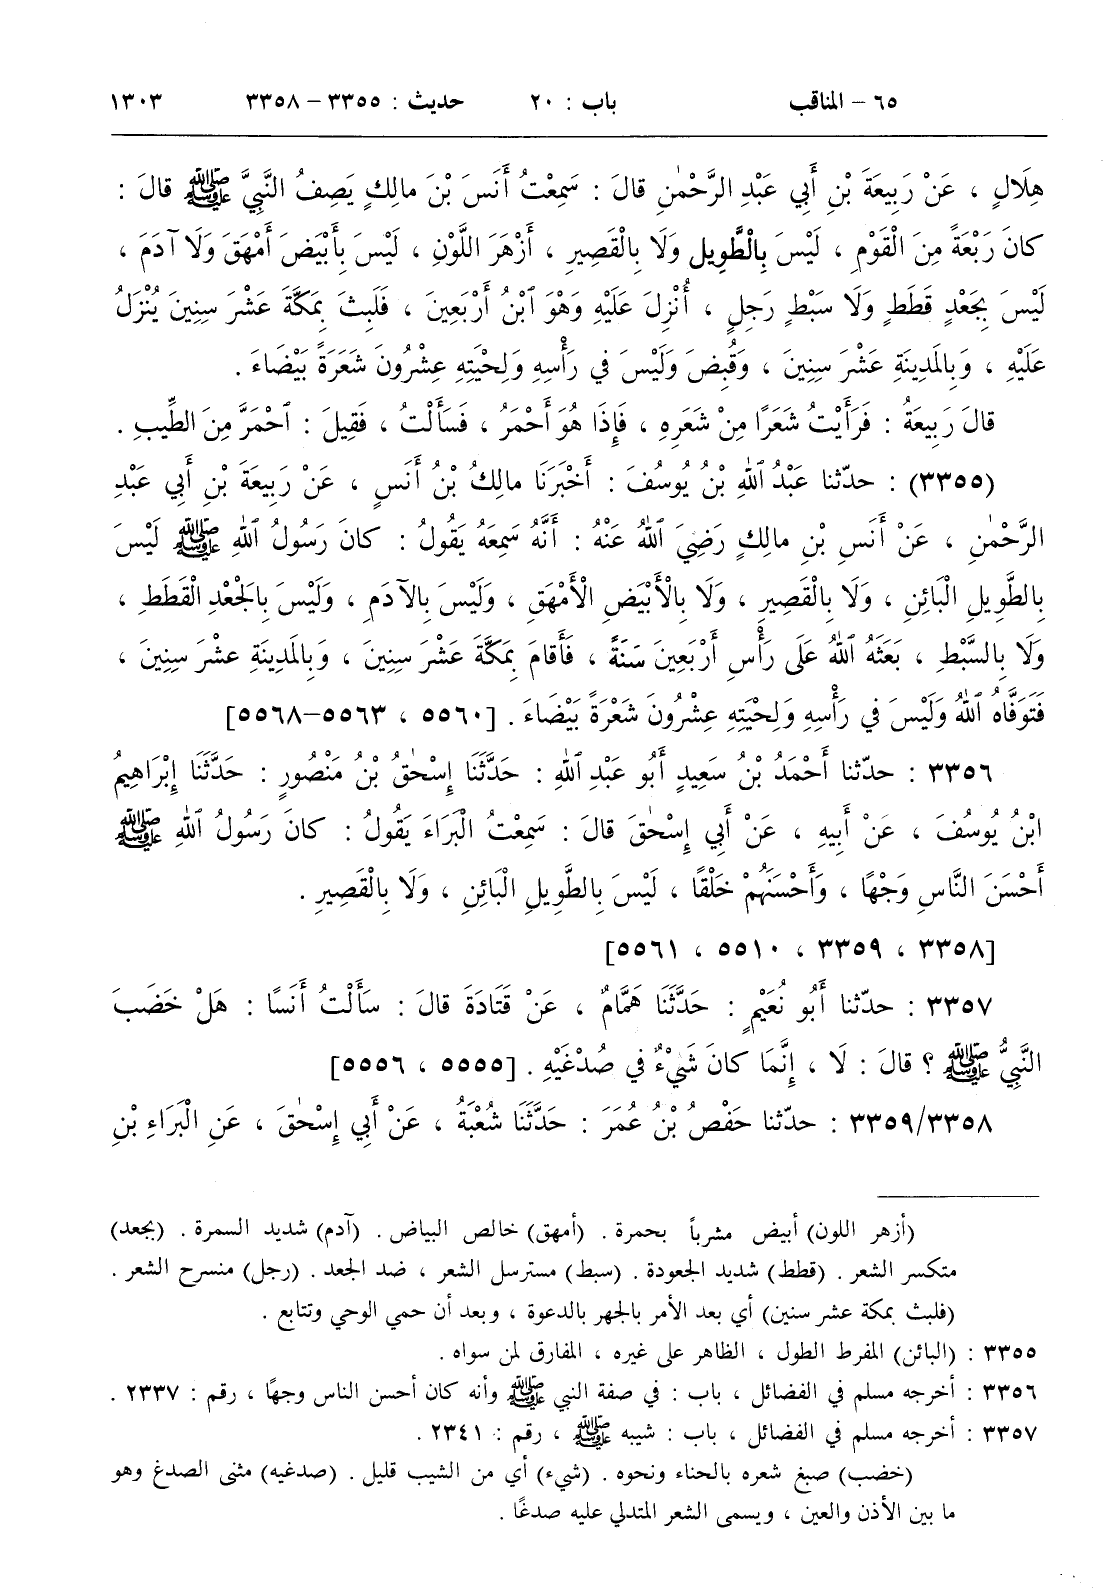 ٦٥ – المناقب باب : ٢٠ حديث : ٣٣٥٥ – ٣٣٥٨ ١٣٠٣
هِلَالٍ ، عَنْ رَبِيعَةَ بْنِ أَبِي عَبْدِ الرَّحْمٰنِ قالَ : سَمِعْتُ أَنَسَ بْنَ مالِكٍ يَصِفُ النَّبِيَّ ﷺ قالَ :
كانَ رَبْعَةً مِنَ الْقَوْمِ ، لَيْسَ بِالْطَّوِيلِ وَلَا بِالْقَصِيرِ ، أَزْهَرَ اللَّوْنِ ، لَيْسَ بِأَبْيَضَ أَمْهَقَ وَلَا آدَمَ ،
لَيْسَ بِجَعْدٍ قَطَطٍ وَلَا سَبْطٍ رَجِلٍ ، أُنْزِلَ عَلَيْهِ وَهْوَ ٱبْنُ أَرْبَعِينَ ، فَلَبِثَ بِمَكَّةَ عَشْرَ سِنِينَ يُنْزَلُ
عَلَيْهِ ، وَبِالمَدِينَةِ عَشْرَ سِنِينَ ، وَقُبِضَ وَلَيْسَ في رَأْسِهِ وَلِحْيَتِهِ عِشْرُونَ شَعَرَةً بَيْضَاءَ .
قالَ رَبِيعَةُ : فَرَأَيْتُ شَعَرًا مِنْ شَعَرِهِ ، فَإِذَا هُوَ أَحْمَرُ ، فَسَأَلْتُ ، فَقِيلَ : ٱحْمَرَّ مِنَ الطِّيبِ .
(٣٣٥٥) : حدّثنا عَبْدُ ٱللهِ بْنُ يُوسُفَ : أَخْبَرَنَا مالِكُ بْنُ أَنَسٍ ، عَنْ رَبِيعَةَ بْنِ أَبِي عَبْدِ
الرَّحْمٰنِ ، عَنْ أَنَسِ بْنِ مالِكٍ رَضِيَ ٱللهُ عَنْهُ : أَنَّهُ سَمِعَهُ يَقُولُ : كانَ رَسُولُ ٱللهِ ﷺ لَيْسَ
بِالطَّوِيلِ الْبَائِنِ ، وَلَا بِالْقَصِيرِ ، وَلَا بِالْأَبْيَضِ الْأَمْهَقِ ، وَلَيْسَ بِالآدَمِ ، وَلَيْسَ بِالجَعْدِ الْقَطَطِ ،
وَلَا بِالسَّبْطِ ، بَعَثَهُ ٱللهُ عَلَى رَأْسِ أَرْبَعِينَ سَنَةً ، فَأَقامَ بِمَكَّةَ عَشْرَ سِنِينَ ، وَبِالمَدِينَةِ عَشْرَ سِنِينَ ،
فَتَوَفَّاهُ ٱللهُ وَلَيْسَ في رَأْسِهِ وَلِحْيَتِهِ عِشْرُونَ شَعْرَةً بَيْضَاءَ . [٥٥٦٠ ، ٥٥٦٣–٥٥٦٨]
٣٣٥٦ : حدّثنا أَحْمَدُ بْنُ سَعِيدٍ أَبُو عَبْدِ ٱللهِ : حَدَّثَنَا إِسْحٰقُ بْنُ مَنْصُورٍ : حَدَّثَنَا إِبْرَاهِيمُ
ابْنُ يُوسُفَ ، عَنْ أَبِيهِ ، عَنْ أَبِي إِسْحٰقَ قالَ : سَمِعْتُ الْبَرَاءَ يَقُولُ : كانَ رَسُولُ ٱللهِ ﷺ
أَحْسَنَ النَّاسِ وَجْهًا ، وَأَحْسَنَهُمْ خَلْقًا ، لَيْسَ بِالطَّوِيلِ الْبَائِنِ ، وَلَا بِالْقَصِيرِ .
[٣٣٥٨ ، ٣٣٥٩ ، ٥٥١٠ ، ٥٥٦١]
٣٣٥٧ : حدّثنا أَبُو نُعَيْمٍ : حَدَّثَنَا هَمَّامٌ ، عَنْ قَتَادَةَ قالَ : سَأَلْتُ أَنَسًا : هَلْ خَضَبَ
النَّبِيُّ ﷺ ؟ قالَ : لَا ، إِنَّمَا كانَ شَيْءٌ في صُدْغَيْهِ . [٥٥٥٥ ، ٥٥٥٦]
٣٣٥٩/٣٣٥٨ : حدّثنا حَفْصُ بْنُ عُمَرَ : حَدَّثَنَا شُعْبَةُ ، عَنْ أَبِي إِسْحٰقَ ، عَنِ الْبَرَاءِ بْنِ
(أزهر اللون) أبيض مشرباً بحمرة . (أمهق) خالص البياض . (آدم) شديد السمرة . (بجعد)
متكسر الشعر . (قطط) شديد الجعودة . (سبط) مسترسل الشعر ، ضد الجعد . (رجل) منسرح الشعر .
(فلبث بمكة عشر سنين) أي بعد الأمر بالجهر بالدعوة ، وبعد أن حمي الوحي وتتابع .
٣٣٥٥ : (البائن) المفرط الطول ، الظاهر على غيره ، المفارق لمن سواه .
٣٣٥٦ : أخرجه مسلم في الفضائل ، باب : في صفة النبي ﷺ وأنه كان أحسن الناس وجهًا ، رقم : ٢٣٣٧ .
٣٣٥٧ : أخرجه مسلم في الفضائل ، باب : شيبه ﷺ ، رقم : ٢٣٤١ .
(خضب) صبغ شعره بالحناء ونحوه . (شيء) أي من الشيب قليل . (صدغيه) مثنى الصدغ وهو
ما بين الأذن والعين ، ويسمى الشعر المتدلي عليه صدغًا .